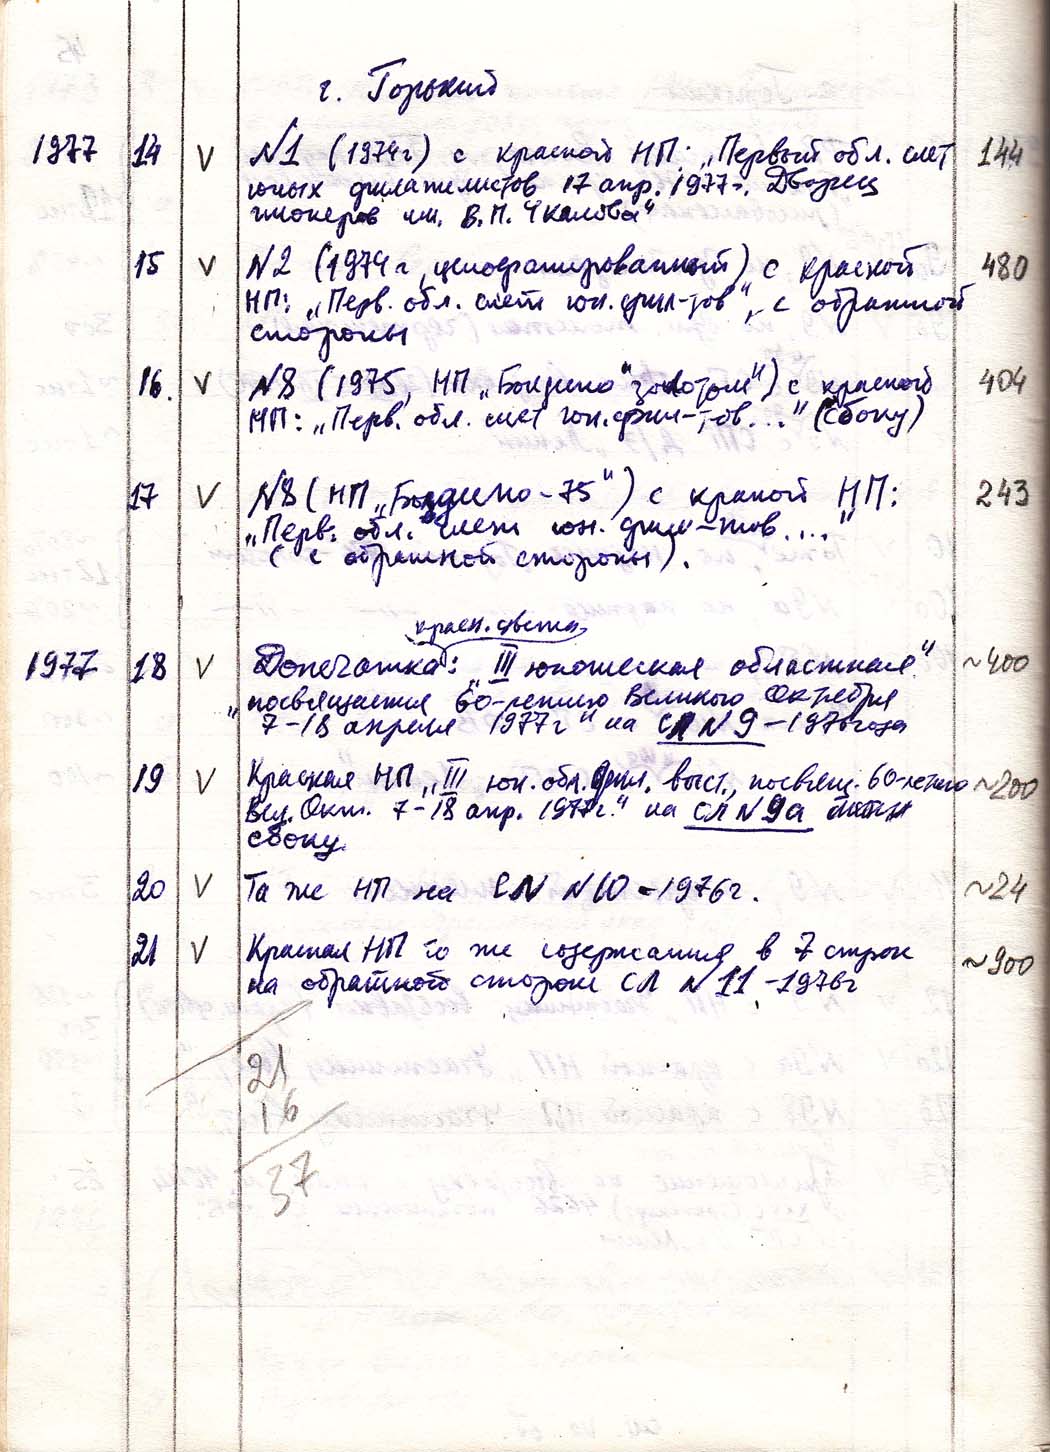 г. Горький
1977 14 V №1 (1974г) с красной НП: „Первый обл. слет 144
юных филателистов 17 апр. 1977г. Дворец
пионеров им. В.П. Чкалова"
15 V №2 (1974г, целофанированный) с красной 480
НП: „Перв. обл. слет юн. фил-тов", с обратной
стороны
16. V №8 (1975, НП „Болдино" золотом") с красной 404
НП: „Перв. обл. слет юн. фил-тов..." (сбоку)
17 V №8 (НП „Болдино-75") с краной НП: 243
„Перв. обл. слет юн. фил-тов...."
(с обратной стороны).
красн. цвета
1977 18 V Допечатка: „III юношеская областная" ~400
„посвящается 60-летию Великого Октября
7-18 апреля 1977г" на СЛ №9-1976года
19 V Красная НП „III юн. обл. фил. выст., посвящ. 60-летию ~200
Вел. Окт. 7-18 апр. 1977г." на СЛ №9а
сбоку.
20 V Та же НП на СЛ №10-1976г. ~24
21 V Красная НП то же содержания в 7 строк ~900
на обратной стороне СЛ №11-1976г
21
16
37